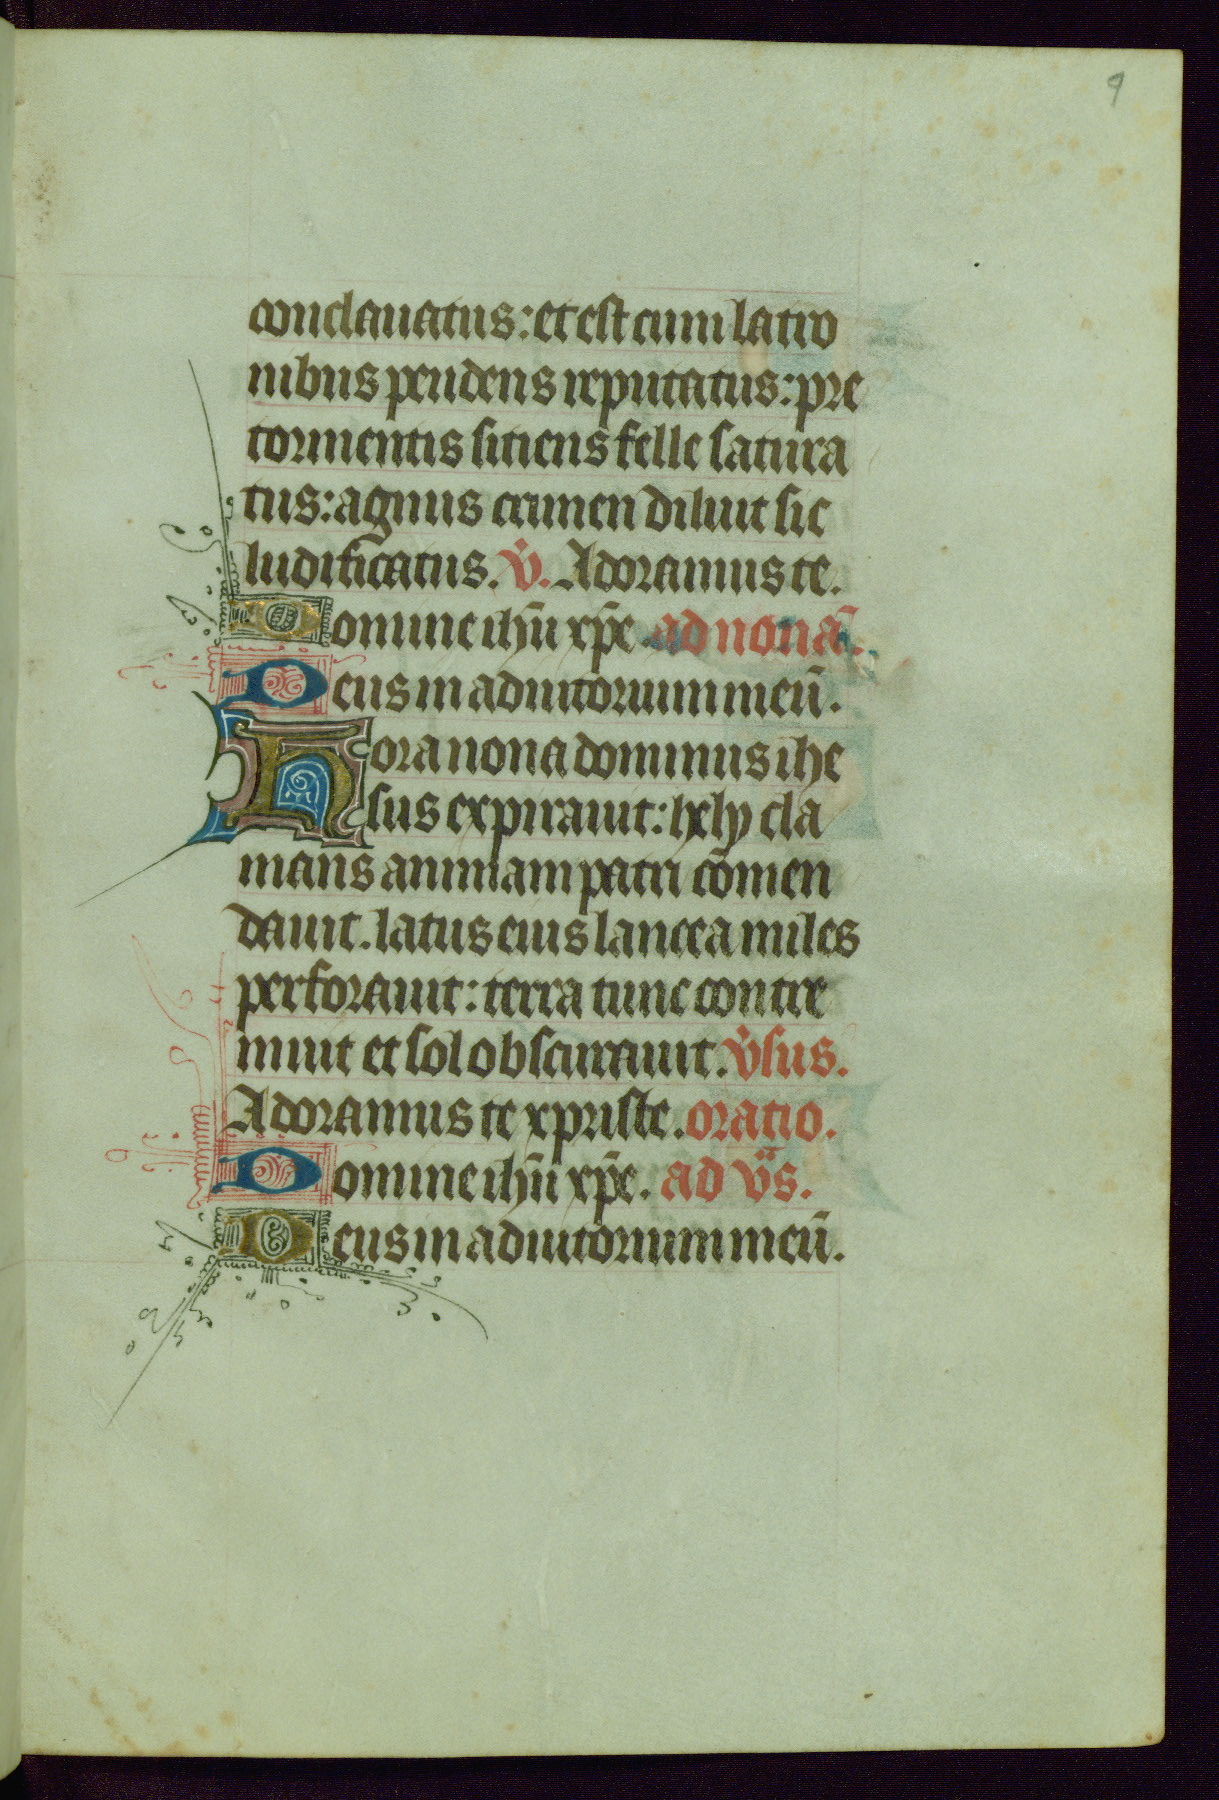 9
conclauatus: et est cum latro
nibus pendens reputatus: pre
tormentis sitiens felle satura
tus: agnus crimen diluit sic
ludificatus. v̓. Adoramus te.
Domine ihū xp̄e. ad nonā.
Deus in adiutorium meū.
Hora nona dominus ihe
sus expirauit: hely cla
mans animam patri cōmen
dauit. latus eius lancea miles
perforauit: terra tunc contre
muit et sol obscurauit. v̓sus.
Adoramus te xpriste. oratio.
Domine ihū xp̄e. ad vs̄.
Deus in adiutorium meū.